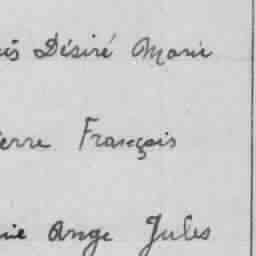 is Désiré Marie
ierre François
rie Ange Jules